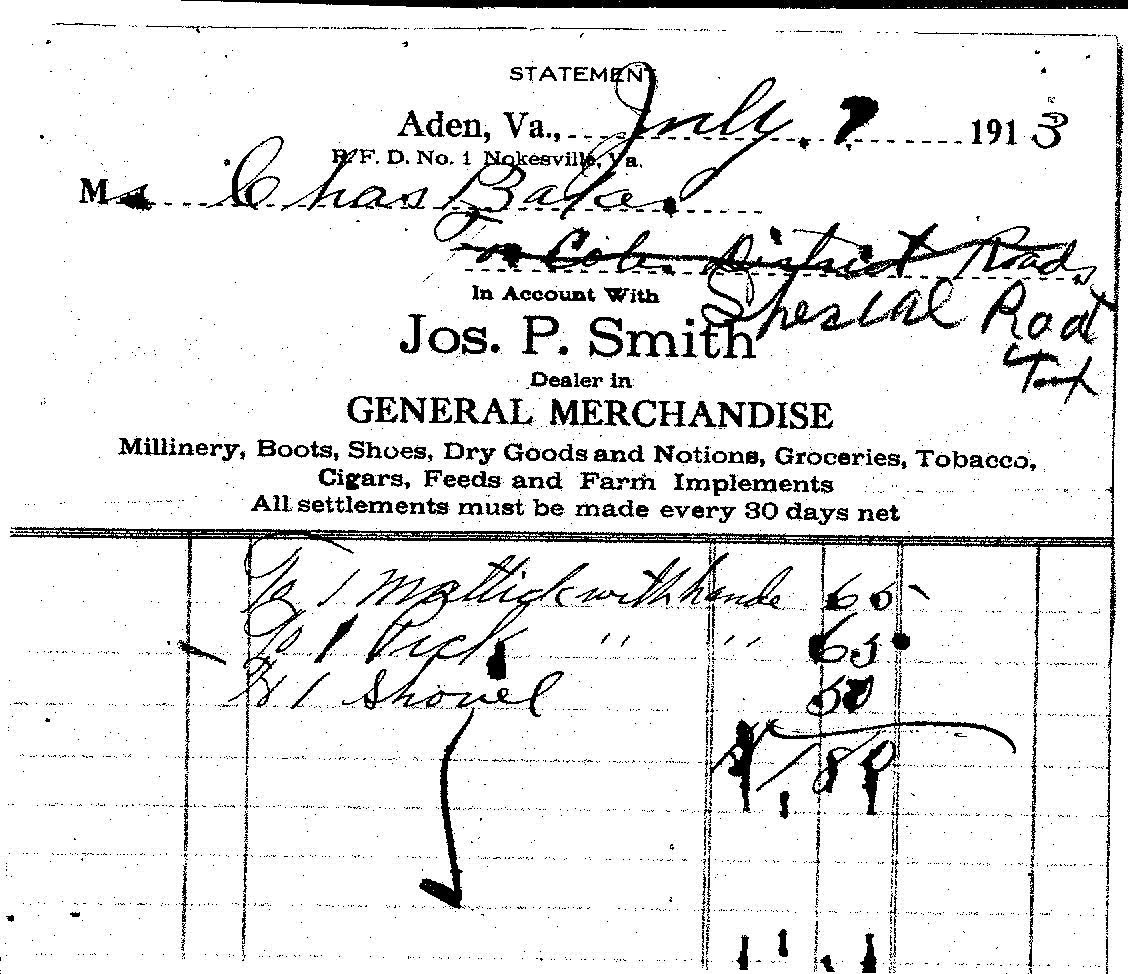 STATEMENT
Aden, Va., July 7 1913
R. F. D. No. 1 Nokesville, Va.
Mr Chas Bake
For Cole District Roads
In Account With
Special Road
Jos. P. Smith
Tax
Dealer in
GENERAL MERCHANDISE
Millinery, Boots, Shoes, Dry Goods and Notions, Groceries, Tobacco,
Cigars, Feeds and Farm Implements
All settlements must be made every 30 days net
To 1 Mattick with hande 65
To 1 Pick " " 65
To 1 Shovel 50
$1 80